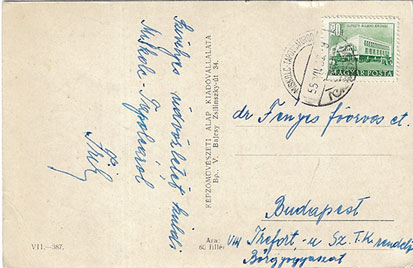 Szívélyes üdvözletét küldi
Miskolc-Tapolcáról
KÉPZŐMŰVÉSZETI ALAP KIADÓVÁLLALATA
Bp., V., Bajcsy Zsilinszky-út 34.
VII.—387.
Ára:
60 fillér
20f
MAGYAR POSTA
MISKOLC-TAPOLCA
55 VII
dr Fényes főorvos et.
Budapest
VIII Trefort-u Sz.T.K. rendelő
Bőrgyógyászat